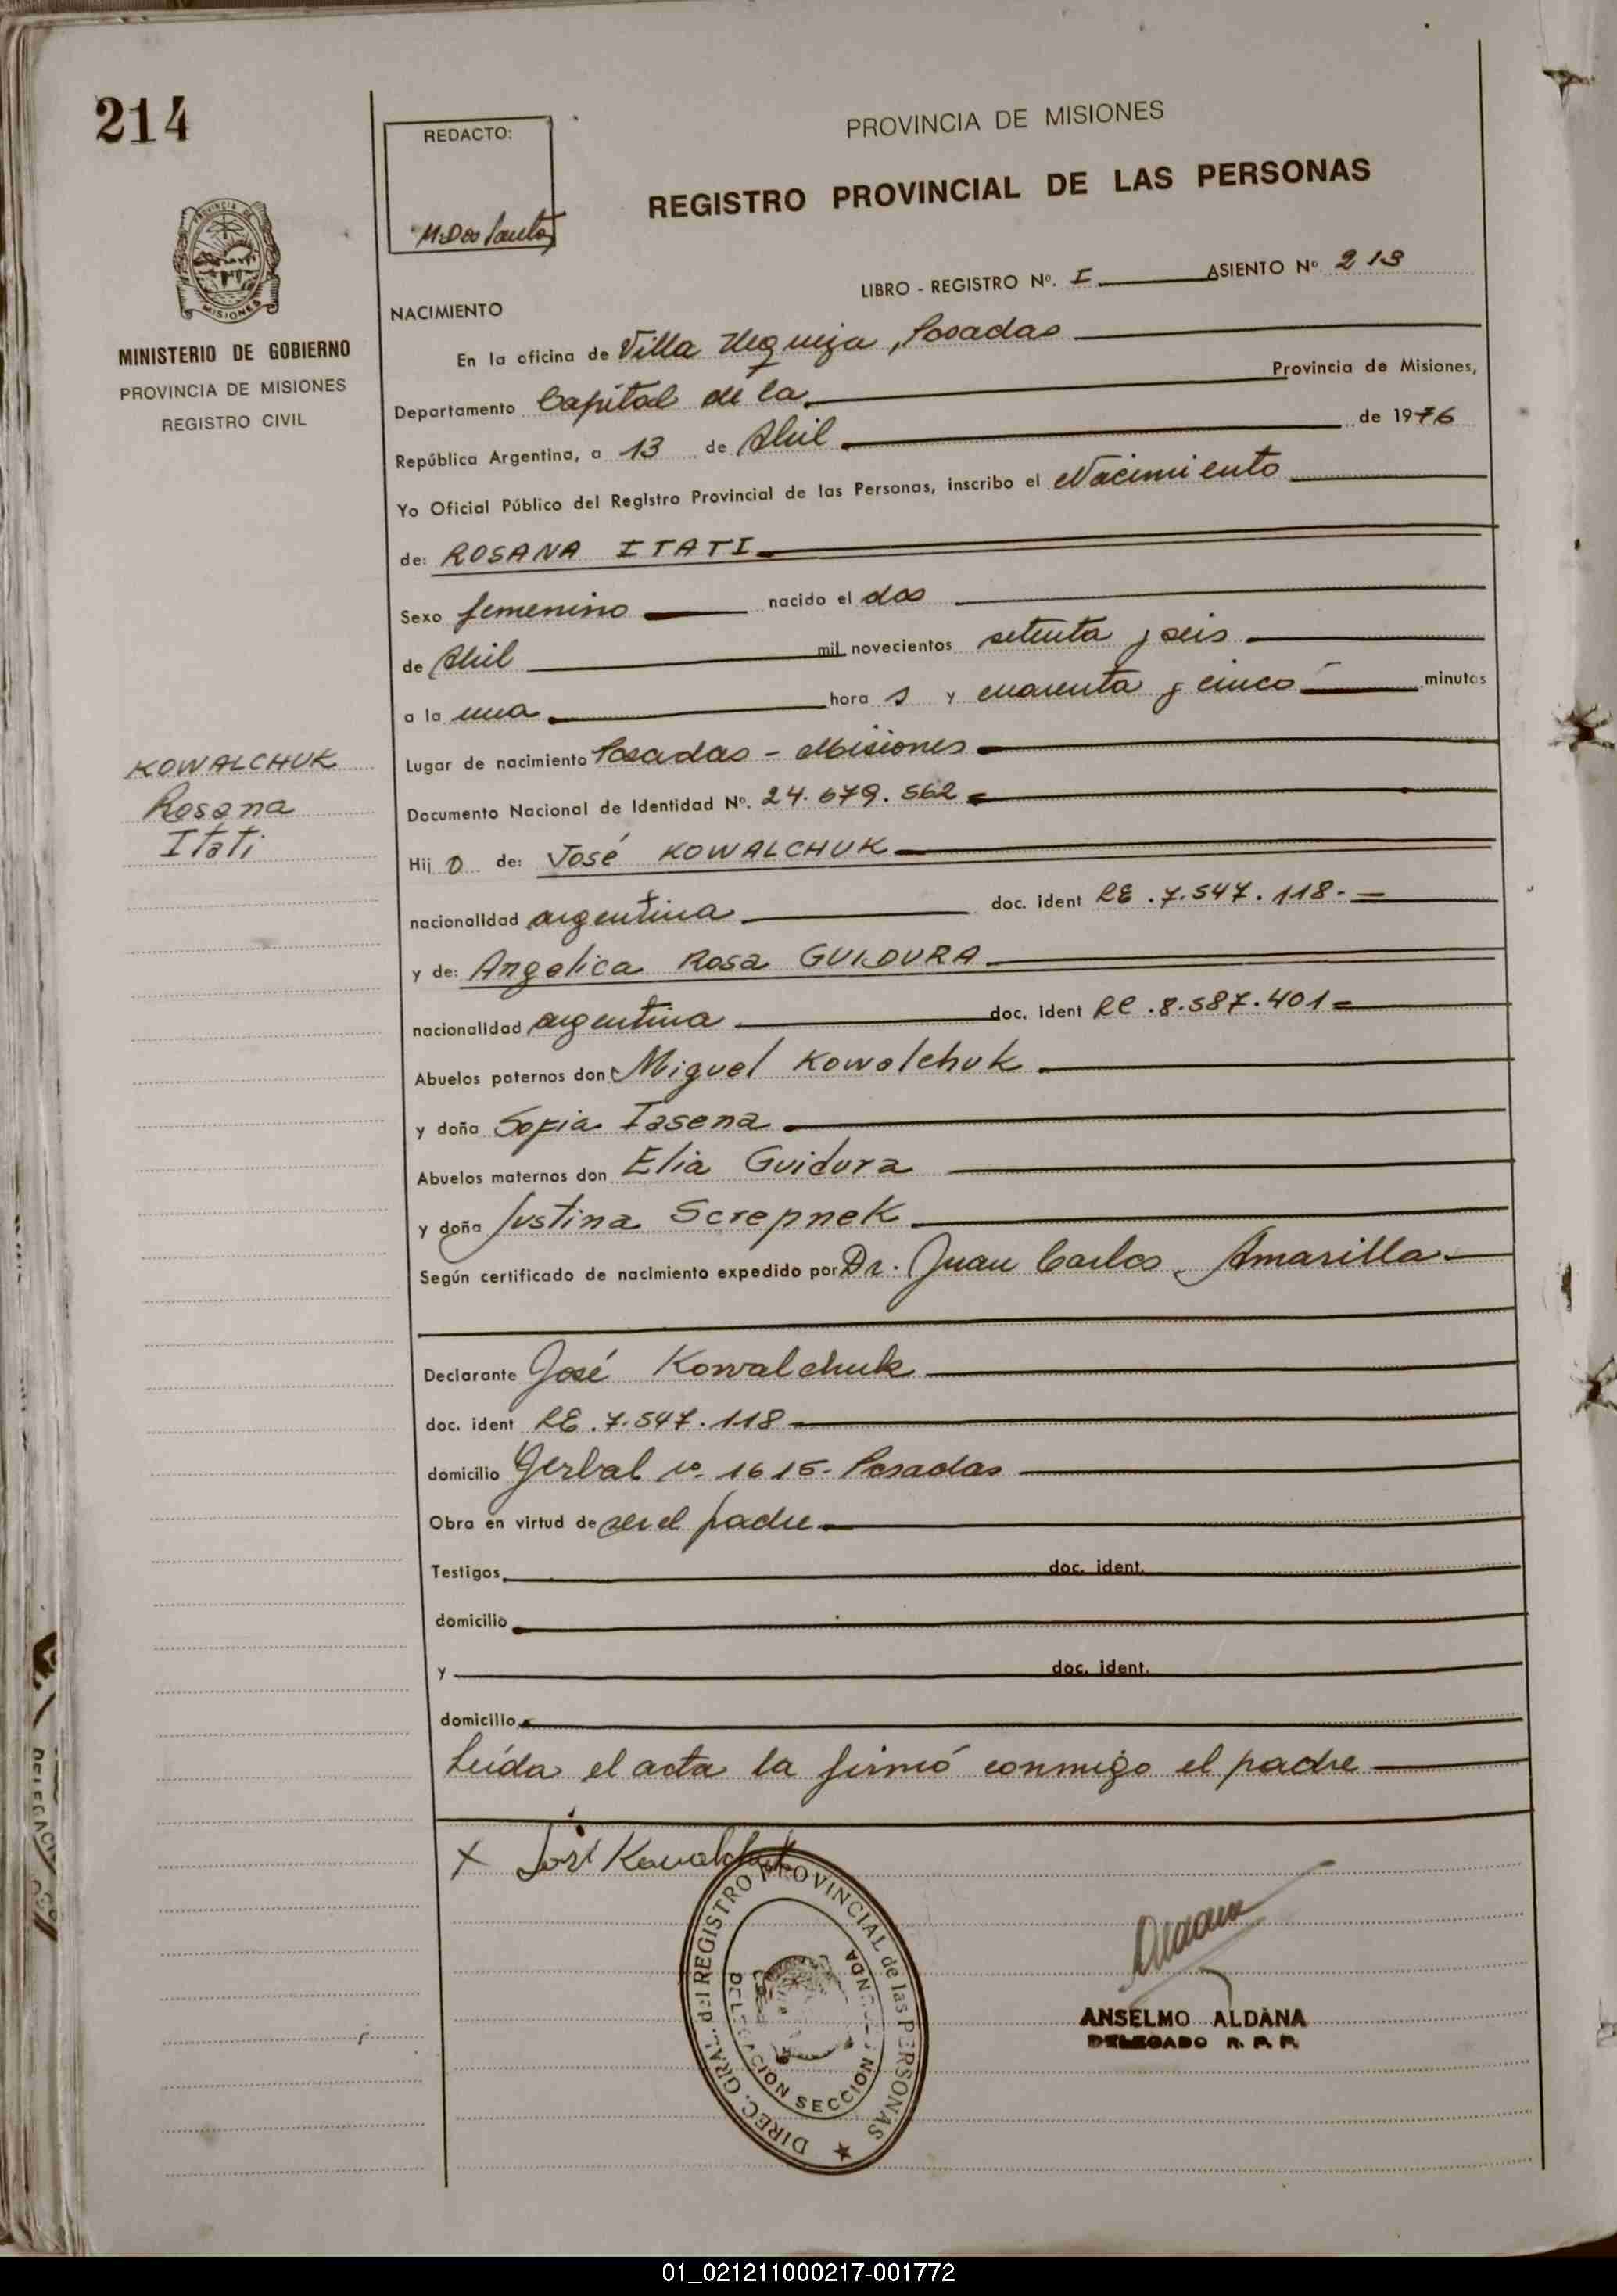 214
REDACTO:
M. Dos Santos
PROVINCIA DE MISIONES
REGISTRO PROVINCIAL DE LAS PERSONAS
PROVINCIA DE
MISIONES
MINISTERIO DE GOBIERNO
PROVINCIA DE MISIONES
REGISTRO CIVIL
LIBRO - REGISTRO Nº. I ASIENTO Nº 213
NACIMIENTO
En la oficina de Villa Urquiza, Posadas
Departamento Capital de la Provincia de Misiones,
República Argentina, a 13 de Abril de 1976
Yo Oficial Público del Registro Provincial de las Personas, inscribo el Nacimiento
de: ROSANA ITATI
Sexo femenino nacido el dos
de Abril mil novecientos setenta y seis
a la una hora s y cuarenta y cinco minutos
KOWALCHUK
Rosana
Itati
Lugar de nacimiento Posadas - Misiones
Documento Nacional de Identidad Nº. 24.679.562
Hij o de: José KOWALCHUK
nacionalidad argentina doc. ident LE . 7.547.118.-
y de: Angelica Rosa GUIDURA
nacionalidad argentina doc. ident LC . 8.587.401
Abuelos paternos don Miguel Kowalchuk
y doña Sofia Iasena
Abuelos maternos don Elia Guidura
y doña Justina Screpnek
Según certificado de nacimiento expedido por Dr. Juan Carlos Amarilla
Declarante José Kowalchuk
doc. ident LE . 7.547.118
domicilio Yerbal nº 1615- Posadas
Obra en virtud de ser el padre
Testigos doc. ident.
domicilio
y doc. ident.
domicilio
Leída el acta la firmó conmigo el padre
X José Kowalchuk
DIREC. GRAL. del REGISTRO PROVINCIAL de las PERSONAS
DELEGACION SECCION
Aldana
ANSELMO ALDANA
DELEGADO R. P. P.
01_021211000217-001772